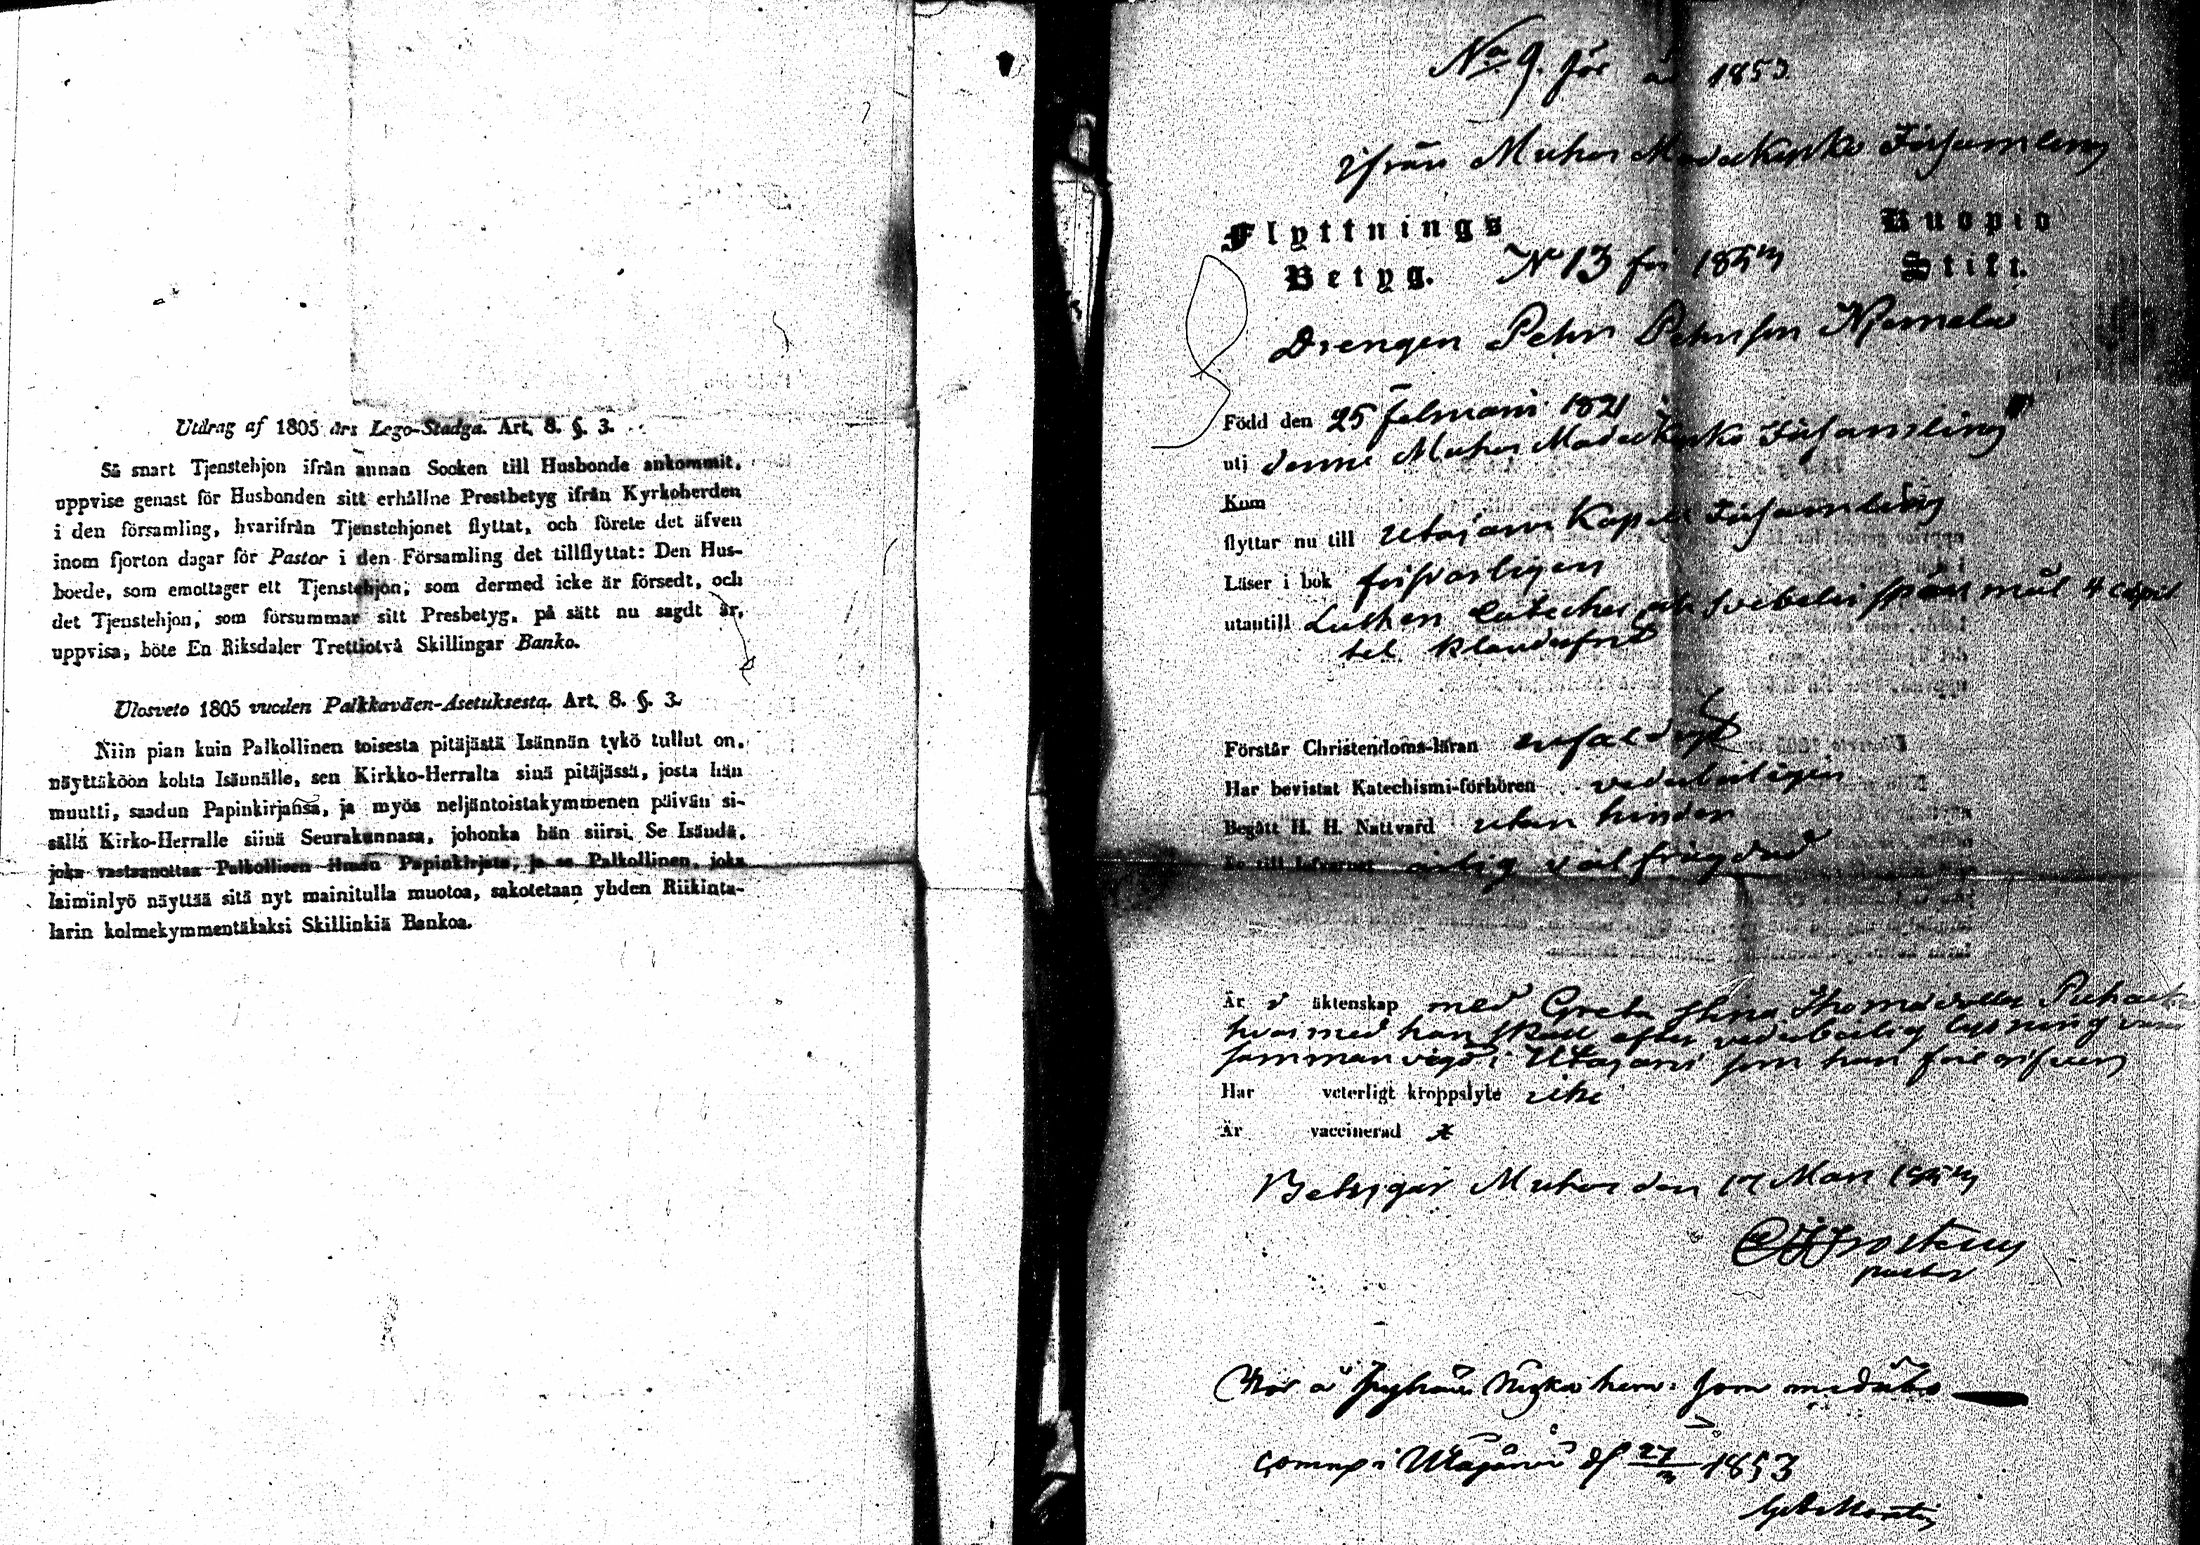 Utdrag af 1805 års Lego-Stadga. Art. 8. §. 3.
Så snart Tjenstehjon ifrån annan Socken till Husbonde ankommit,
uppvise genast för Husbonden sitt erhållne Prestbetyg ifrån Kyrkoherden
i den församling, hvarifrån Tjenstehjonet flyttat, och förete det äfven
inom fjorton dagar för Pastor i den Församling det tillflyttat: Den Hus-
boede, som emottager ett Tjenstehjon, som dermed icke är försedt, och
det Tjenstehjon, som försummar sitt Presbetyg, på sätt nu sagdt är,
uppvisa, böte En Riksdaler Trettiotvå Skillingar Banko.
Ulosveto 1805 vuoden Palkkaväen-Asetuksesta. Art. 8. §. 3.
Niin pian kuin Palkollinen toisesta pitäjästä Isännän tykö tullut on,
näyttäköön kohta Isännälle, sen Kirkko-Herralta siuä pitäjässä, josta hän
muutti, saadun Papinkirjansa, ja myös neljäntoistakymmenen päivän si-
sällä Kirko-Herralle siinä Seurakunnasa, johonka hän siirsi. Se Isäudä,
joka vastaanottaa Palkollisen ilman Papinkirjata, ja se Palkollinen, joka
laiminlyö näyttää sitä nyt mainitulla muotoa, sakotetaan yhden Riikinta-
larin kolmekymmentäkaksi Skillinkiä Bankoa.
No 9. för år 1853
ifrån Muhos Församling
Flyttnings Kuopio
Betyg. No 13 för 1853 Stift.
Drengen Pehr Pehrsson Njemelä
Född den 25 februarii 1821
uti denne Muhos Församling
Kom
flyttar nu till Utajärvi Kapell Församling
Läser i bok försvarligen
utantill Luthers Cateches spörsmål 4 capit
tel klanderfritt
Förstår Christendoms-läran
Har bevistat Katechismi-förhören vederbörligen
Begått H. H. Nattvard utan hinder
Är till lefvernet ärlig väl frägdad
Är i äktenskap med Greta Stina Thomasdotter
hvarmed han skall efter vederbörlig lysning
samman vigd i Utajärvi som han
Har veterligt kroppslyte icke
Är vaccinerad x
Betygar Muhos den 17 Mars 1853
Pastor
som
i Utajärvi d 27/3 1853